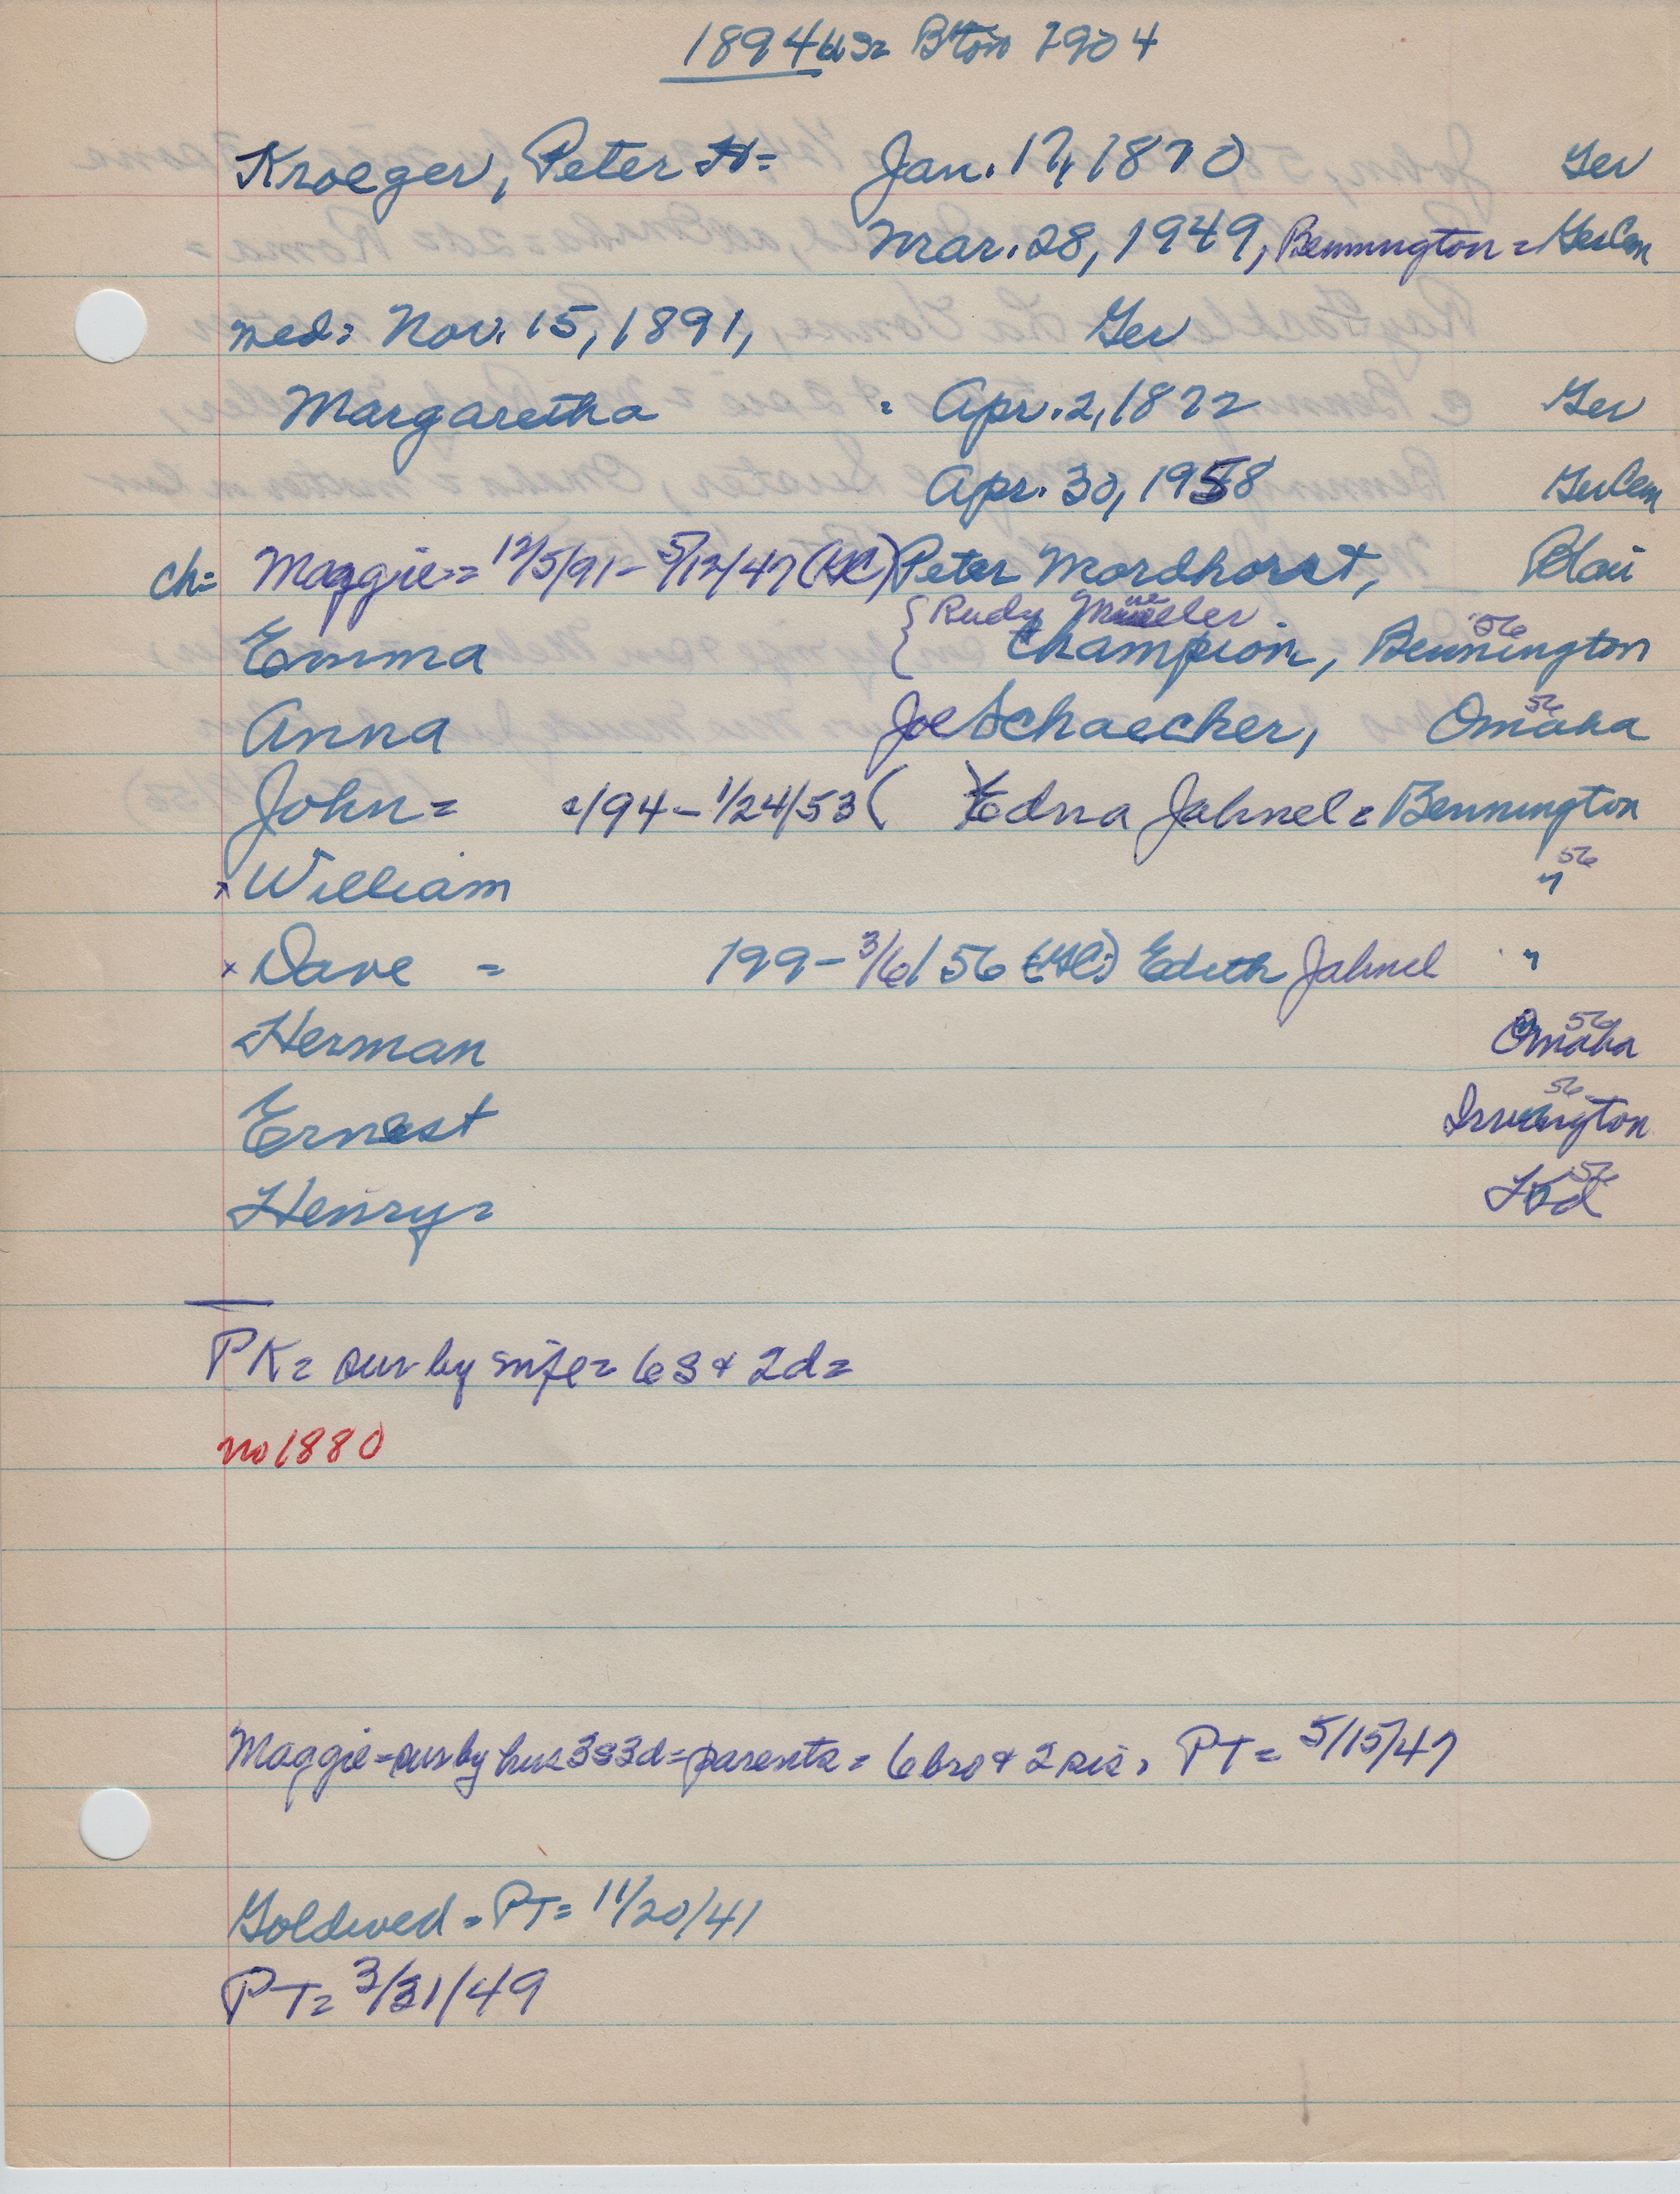 1894 US= B'ton 1904
Kroeger, Peter H= Jan. 17, 1870 Ger
Mar. 28, 1949, Bennington = GerCem
wed= Nov. 15, 1891, Ger
Margaretha = Apr. 2, 1872 Ger
Apr. 30, 1958 GerCem
ch= Maggie = 12/5/91 - 5/12/47 (HC) Peter Mordhorst, Blair
{ Rudy Mueller
Emma Champion, Bennington 56
Anna Joe Schaecker, Omaha 56
John = 2/94 - 1/24/53 ( Edna Jahnel = Bennington
x William " 56
x Dave = 199 - 3/6/56 (HC) Edith Jahnel "
Herman Omaha 56
Ernest Irvington 56
Henry = 56
PK= sur by wife = 6s & 2d =
no 1880
Maggie = sur by hus 3s3d = parents = 6 bro & 2 sis, PT = 5/15/47
Goldwed = PT = 11/20/41
PT = 3/31/49